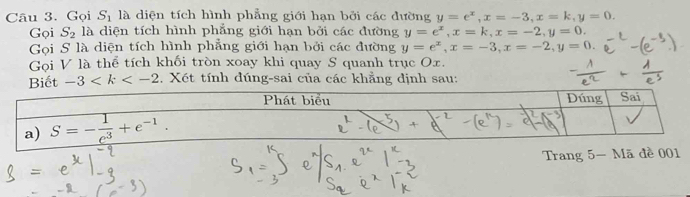 Câu 3. Gọi S₁ là diện tích hình phẳng giới hạn bởi các đường y = eˣ, x = −3, x = k, y = 0.
Gọi S₂ là diện tích hình phẳng giới hạn bởi các đường y = eˣ, x = k, x = −2, y = 0.
Gọi S là diện tích hình phẳng giới hạn bởi các đường y = eˣ, x = −3, x = −2, y = 0. e⁻² - (e⁻³)
Gọi V là thể tích khối tròn xoay khi quay S quanh trục Ox.
-1/e² + 1/e³
Biết −3 < k < −2. Xét tính đúng-sai của các khẳng định sau:
Phát biểu Đúng Sai
a) S = −1/e³ + e⁻¹. ✓
Trang 5− Mã đề 001
S = eˣ |₋₃⁻²
S₁ = ∫₋₃ᵏ eˣ
S₁ eˣ |₋₃ᵏ
S₂ eˣ |ₖ⁻²